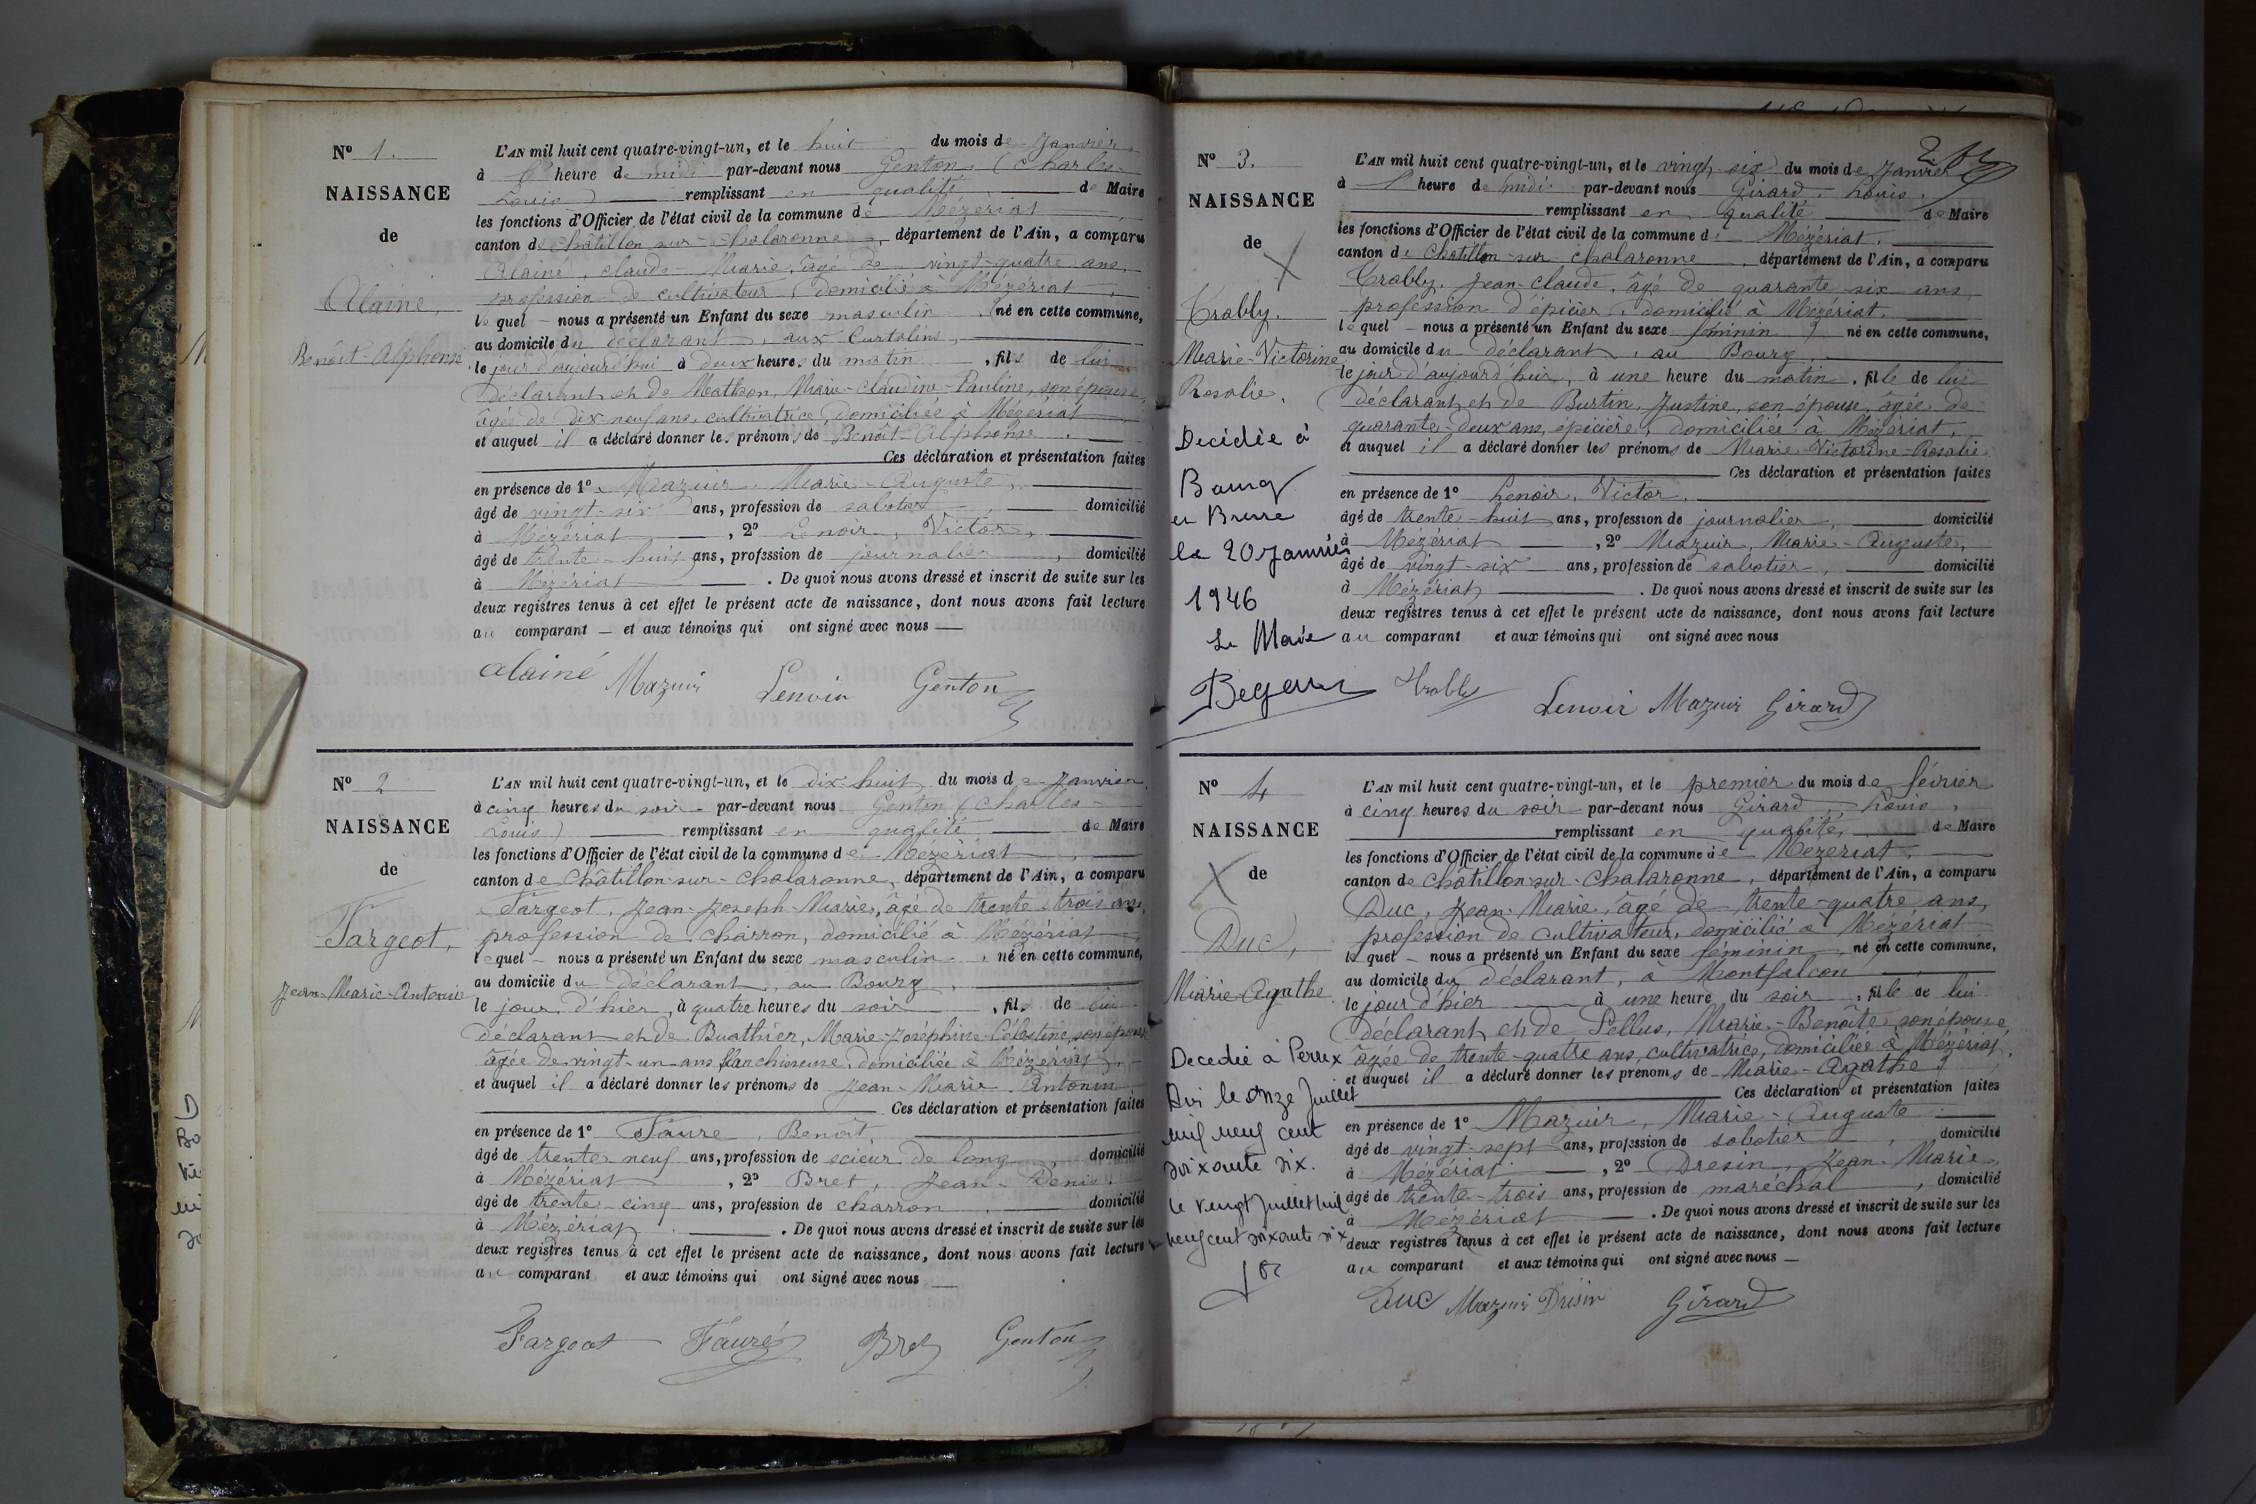 N° 1.
NAISSANCE
de
Alainé,
Benoît-Alphonse
L'AN mil huit cent quatre-vingt-un, et le huit du mois de Janvier,
à heure de midi par-devant nous Genton (Charles-
Louis) remplissant en qualité de Maire
les fonctions d'Officier de l'état civil de la commune de Mézériat,
canton de Châtillon-sur-Chalaronne, département de l'Ain, a comparu
Alainé, Claude-Marie, âgé de vingt-quatre ans,
profession de cultivateur, domicilié à Mézériat,
lequel - nous a présenté un Enfant du sexe masculin, né en cette commune,
au domicile du déclarant, aux Curtalins,
le jour d'aujourd'hui à deux heures du matin, fils de lui
déclarant et de Matheon, Marie-Claudine-Pauline, son épouse,
âgée de dix neuf ans, cultivatrice, domiciliée à Mézériat
et auquel il a déclaré donner les prénoms de Benoît-Alphonse.
Ces déclaration et présentation faites
en présence de 1° Mazuir, Marie-Auguste,
âgé de vingt-six ans, profession de sabotier domicilié
à Mézériat, 2° Lenoir, Victor,
âgé de trente-huit ans, profession de journalier, domicilié
à Mézériat. De quoi nous avons dressé et inscrit de suite sur les
deux registres tenus à cet effet le présent acte de naissance, dont nous avons fait lecture
au comparant - et aux témoins qui ont signé avec nous
Alainé Mazuir Lenoir Genton
N° 2
NAISSANCE
de
Fargeot,
Jean-Marie-Antonin
L'AN mil huit cent quatre-vingt-un, et le dix-huit du mois de Janvier
à cinq heures du soir par-devant nous Genton (Charles-
Louis) remplissant en qualité de Maire
les fonctions d'Officier de l'état civil de la commune de Mézériat,
canton de Châtillon-sur-Chalaronne, département de l'Ain, a comparu
Fargeot, Jean-Joseph-Marie, âgé de trente-trois ans,
profession de charron, domicilié à Mézériat,
lequel - nous a présenté un Enfant du sexe masculin, né en cette commune,
au domicile du déclarant, au Bourg,
le jour d'hier, à quatre heures du soir, fils de lui
déclarant et de Buathier, Marie-Joséphine-Célestine, son épouse
âgée de vingt-un ans, blanchisseuse, domiciliée à Mézériat,
et auquel il a déclaré donner les prénoms de Jean-Marie Antonin
Ces déclaration et présentation faites
en présence de 1° Faure, Benoît,
âgé de trente neuf ans, profession de scieur de long, domicilié
à Mézériat, 2° Bret, Jean-Denis
âgé de trente-cinq ans, profession de charron domicilié
à Mézériat. De quoi nous avons dressé et inscrit de suite sur les
deux registres tenus à cet effet le présent acte de naissance, dont nous avons fait lecture
au comparant et aux témoins qui ont signé avec nous
Fargeot Faure Bret Genton
2
N° 3.
NAISSANCE
de
Trably.
Marie-Victorine
Rosalie.
Decédée à
Bourg
en Bresse
le 20 Janvier
1946
Le Maire
L'AN mil huit cent quatre-vingt-un, et le vingt-six du mois de Janvier
à heure de midi par-devant nous Girard, Louis,
remplissant en qualité de Maire
les fonctions d'Officier de l'état civil de la commune de Mézériat.
canton de Châtillon-sur-Chalaronne, département de l'Ain, a comparu
Trably, Jean-Claude, âgé de quarante-six ans
profession d'épicier, domicilié à Mézériat.
lequel - nous a présenté un Enfant du sexe féminin, né en cette commune,
au domicile du déclarant, au Bourg,
le jour d'aujourd'hui, à une heure du matin, fille de lui
déclarant et de Burtin, Justine, son épouse, âgée de
quarante-deux ans, épicière, domiciliée à Mézériat,
et auquel il a déclaré donner les prénoms de Marie-Victorine-Rosalie.
Ces déclaration et présentation faites
en présence de 1° Lenoir, Victor.
âgé de trente-huit ans, profession de journalier, domicilié
à Mézériat, 2° Mazuir, Marie-Auguste,
âgé de vingt-six ans, profession de sabotier, domicilié
à Mézériat. De quoi nous avons dressé et inscrit de suite sur les
deux registres tenus à cet effet le présent acte de naissance, dont nous avons fait lecture
au comparant et aux témoins qui ont signé avec nous
Trably Lenoir Mazuir Girard
N° 4
NAISSANCE
de
Duc,
Marie-Agathe.
Decedée à Perrex
Ain le onze Juillet
mil neuf cent
soixante six.
Le vingt Juillet mil
neuf cent soixante six
L'AN mil huit cent quatre-vingt-un, et le premier du mois de février
à cinq heures du soir par-devant nous Girard, Louis,
remplissant en qualité, de Maire
les fonctions d'Officier de l'état civil de la commune de Mézériat.
canton de Châtillon-sur-Chalaronne, département de l'Ain, a comparu
Duc, Jean-Marie, âgé de trente-quatre ans,
profession de cultivateur, domicilié à Mézériat
lequel - nous a présenté un Enfant du sexe féminin, né en cette commune,
au domicile du déclarant, à Montfalcon
le jour d'hier à une heure du soir, fille de lui
déclarant et de Pellus, Marie-Benoîte son épouse
âgée de trente-quatre ans, cultivatrice, domiciliée à Mézériat,
et auquel il a déclaré donner les prénoms de Marie-Agathe
Ces déclaration et présentation faites
en présence de 1° Mazuir, Marie-Auguste
âgé de vingt-sept ans, profession de sabotier, domicilié
à Mézériat, 2° Dresin, Jean-Marie,
âgé de trente-trois ans, profession de maréchal, domicilié
à Mézériat. De quoi nous avons dressé et inscrit de suite sur les
deux registres tenus à cet effet le présent acte de naissance, dont nous avons fait lecture
au comparant et aux témoins qui ont signé avec nous
Duc Mazuir Dresin Girard